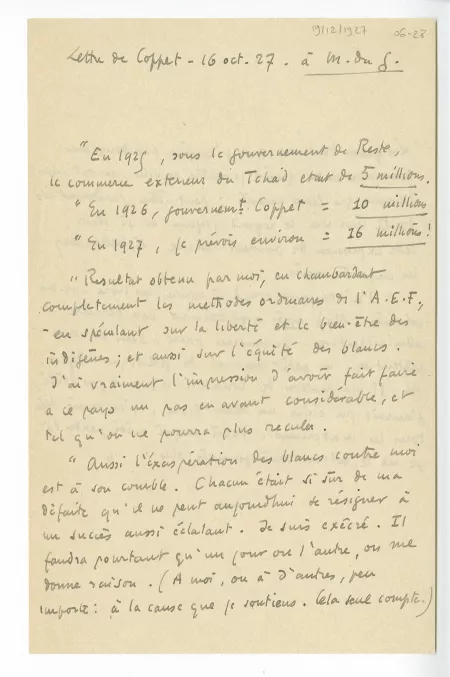 19/12/1927
06-28
Lettre de Coppet - 16 oct. 27. à M. du G.
"En 1925, sous le gouvernement de Reste,
le commerce extérieur du Tchad était de 5 millions.
"En 1926, gouvernemt. Coppet = 10 millions
"En 1927, je prévois environ = 16 millions!
"Résultat obtenu par moi, en chambardant
complètement les méthodes ordinaires de l'A.E.F.,
- en spéculant sur la liberté et le bien-être des
indigènes; et aussi sur l'équité des blancs.
J'ai vraiment l'impression d'avoir fait faire
à ce pays un pas en avant considérable, et
tel qu'on ne pourra plus reculer.
"Aussi l'exaspération des blancs contre moi
est à son comble. Chacun était si sûr de ma
défaite qu'il ne peut aujourd'hui se résigner à
un succès aussi éclatant. Je suis exécré. Il
faudra pourtant qu'un jour ou l'autre, on me
donne raison. (A moi, ou à d'autres, peu
importe: à la cause que je soutiens. Cela seul compte.)